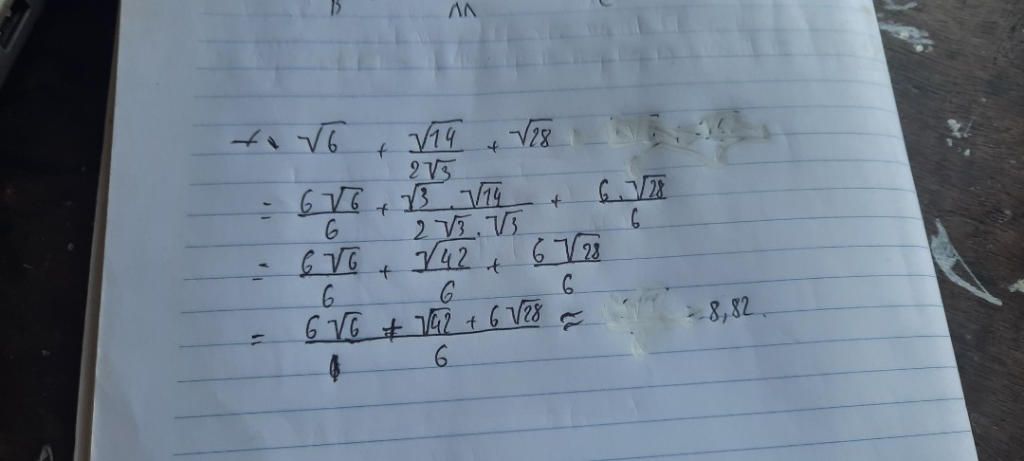 B M C
√6 + √14/2√3 + √28
= 6√6/6 + √3.√14/2√3.√3 + 6.√28/6
= 6√6/6 + √42/6 + 6√28/6
= 6√6 + √42 + 6√28/6 ≈ = 8,82.